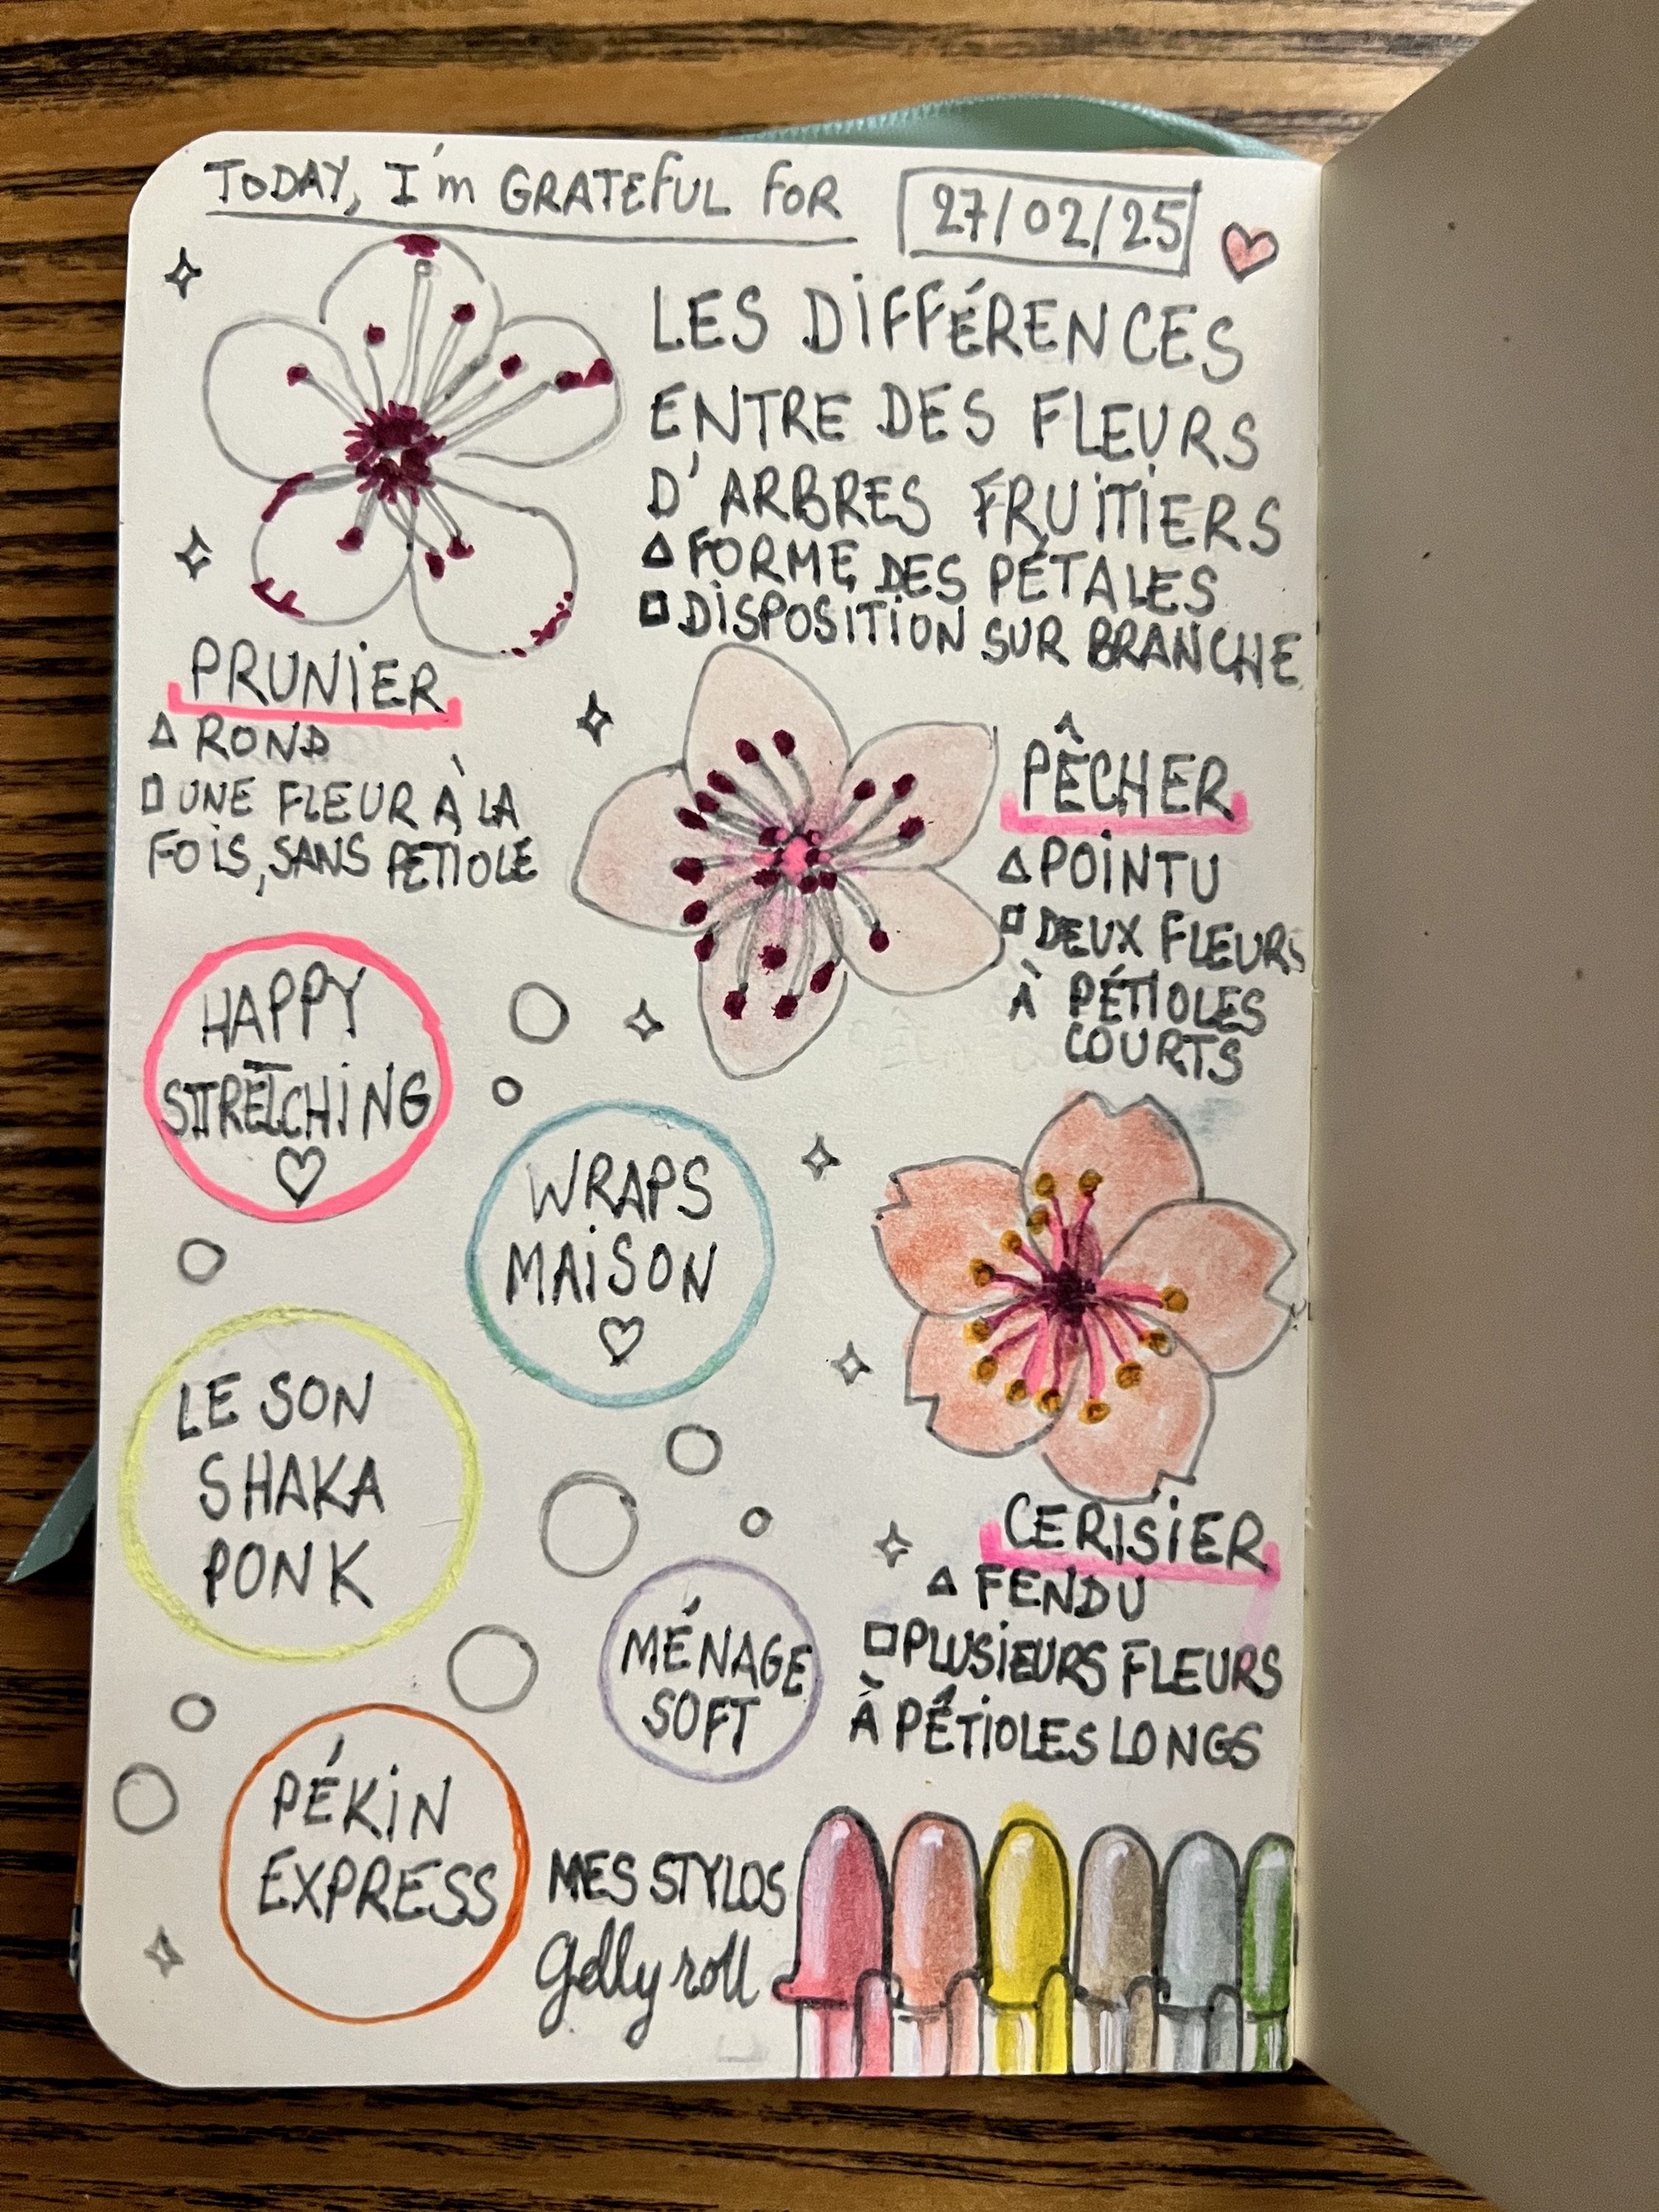 TODAY, I'm GRATEFUL FOR 27/02/25
LES DIFFÉRENCES
ENTRE DES FLEURS
D'ARBRES FRUITIERS
△ FORME DES PÉTALES
□ DISPOSITION SUR BRANCHE
PRUNIER
△ ROND
□ UNE FLEUR À LA
FOIS, SANS PETIOLE
PÊCHER
△ POINTU
□ DEUX FLEURS
À PÉTIOLES
COURTS
HAPPY
STRETCHING
♡
WRAPS
MAISON
♡
LE SON
SHAKA
PONK
CERISIER
△ FENDU
□ PLUSIEURS FLEURS
À PÉTIOLES LONGS
MÉNAGE
SOFT
PÉKIN
EXPRESS
MES STYLOS
Gelly roll